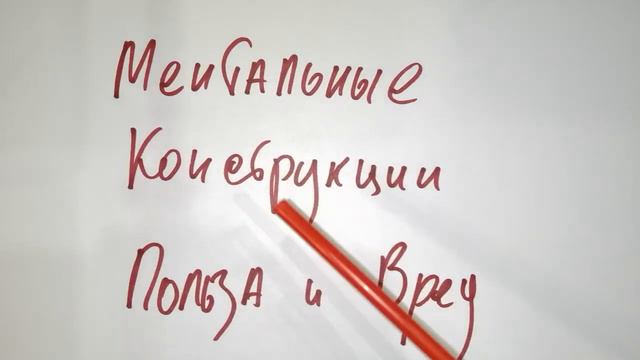 Ментальные
Конструкции
Польза и Вред